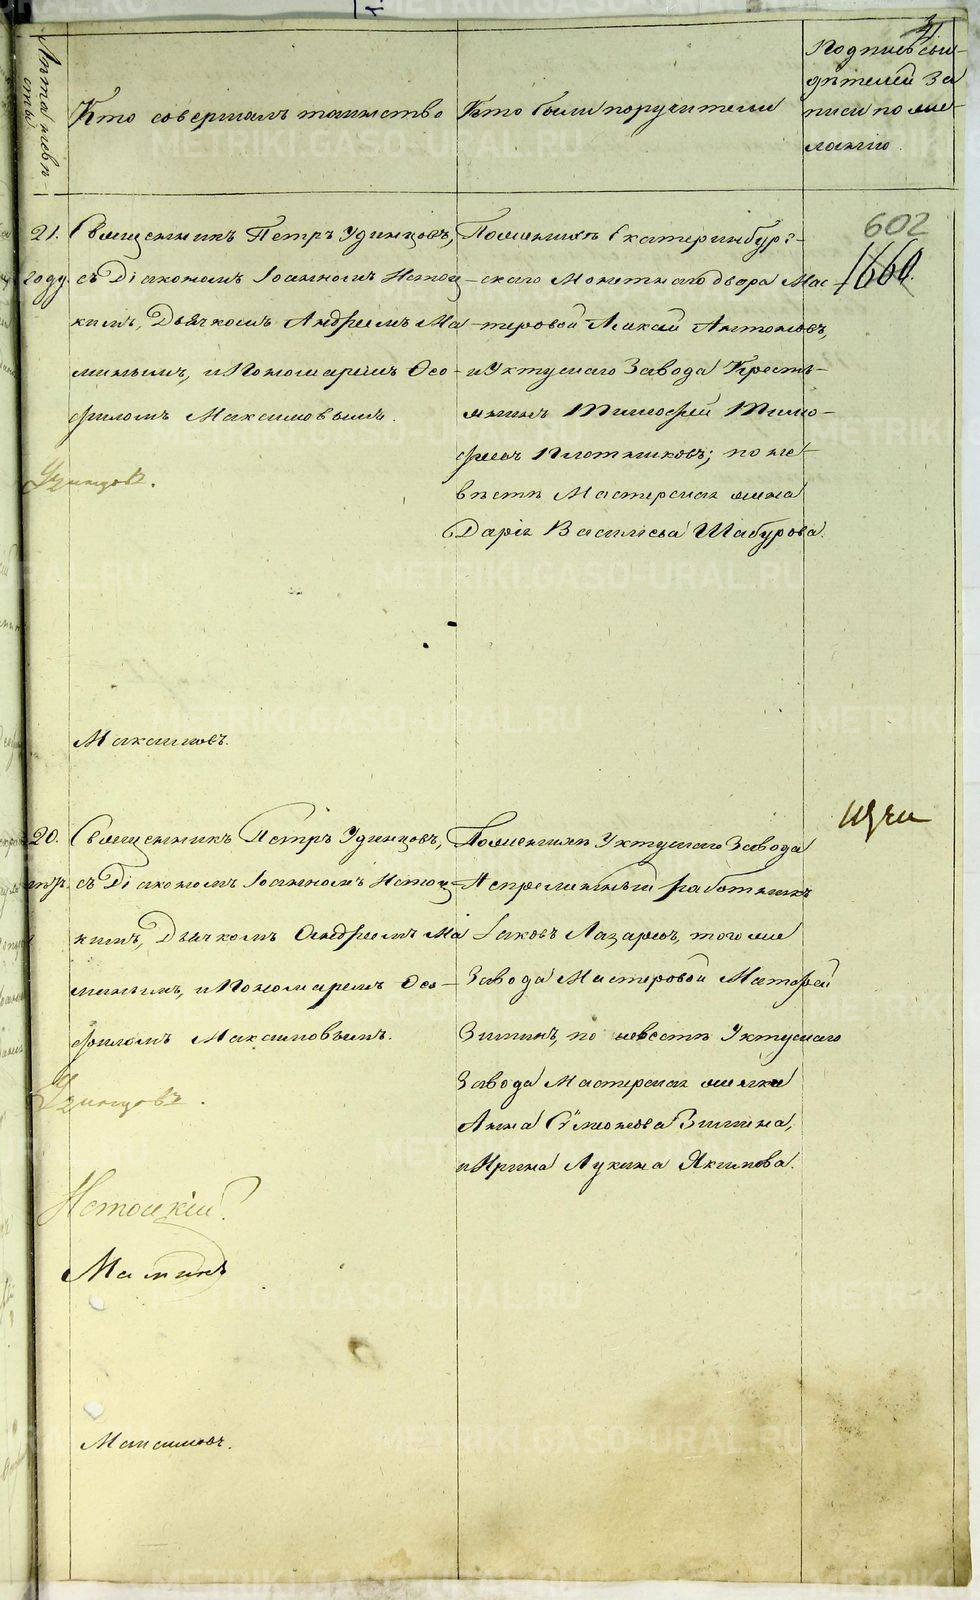 Лѣта невѣ-
сты
Кто совершалъ таинство
Кто были поручители
Подпись сви-
дѣтелей за
писи по же-
ланію.
21.
году.
Священникъ Петръ Удинцовъ,
съ Діакономъ Іоанномъ Истоц-
кимъ, Дьячкомъ Андреемъ Ма-
минымъ, и Пономаремъ Ѳео-
филомъ Максимовымъ.
Удинцовъ.
Максимовъ.
По женихѣ Екатеринбург-
скаго Монетнаго двора Мас-
теровой Антоновъ,
и Уктускаго Завода Кресть-
янинъ Тимофей Тимо-
феевъ Плотниковъ; по не-
вѣстѣ Мастерская жена
Дарія Васильева Шабурова.
602
1660.
20.
Священникъ Петръ Удинцовъ,
съ Діакономъ Іоанномъ Истоц-
кимъ, Дьячкомъ Андреемъ Ма
минымъ, и Пономаремъ Ѳео-
филомъ Максимовымъ.
Удинцовъ.
Истоцкій
Маминъ
Максимовъ.
По женихѣ Уктускаго Завода
Непремѣнный работникъ
Іаковъ Лазаревъ, того же
Завода Мастеровой Матфей
Зиминъ, по невѣстѣ Уктускаго
Завода Мастерская женка
Анна Сѵмеонова Зимина,
и Ирина Лукина Якимова.
METRIKI.GASO-URAL.RU